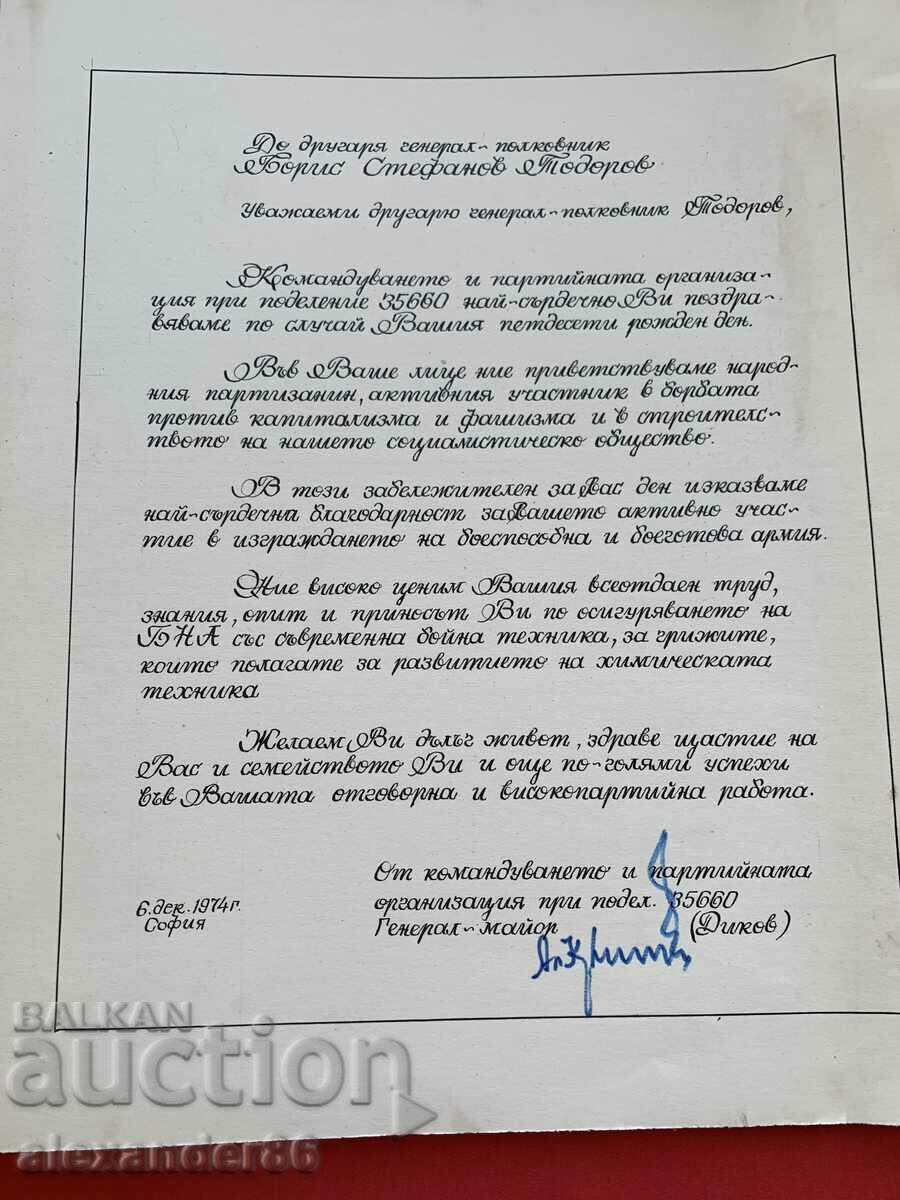 До другаря генерал-полковник
Борис Стефанов Тодоров
Уважаеми другарю генерал-полковник Тодоров,
Командуването и партийната организа-
ция при поделение 35660 най-сърдечно Ви поздра-
вяваме по случай Вашия петдесети рожден ден.
Във Ваше лице ние приветствуваме народ-
ния партизанин, активния участник в борбата
против капитализма и фашизма и в строителс-
твото на нашето социалистическо общество.
В този забележителен за Вас ден изказваме
най-сърдечна благодарност за Вашето активно учас-
тие в изграждането на боеспособна и боеготова армия.
Ние високо ценим Вашия всеотдаен труд,
знания, опит и приносът Ви по осигуряването на
БНА със съвременна бойна техника, за грижите,
които полагате за развитието на химическата
техника
Желаем Ви дълъг живот, здраве щастие на
Вас и семейството Ви и още по-голями успехи
във Вашата отговорна и високопартийна работа.
От командуването и партийната
организация при подел. 35660
Генерал-майор (Диков)
6. дек. 1974 г.
София
BALKAN
auction
alexander86